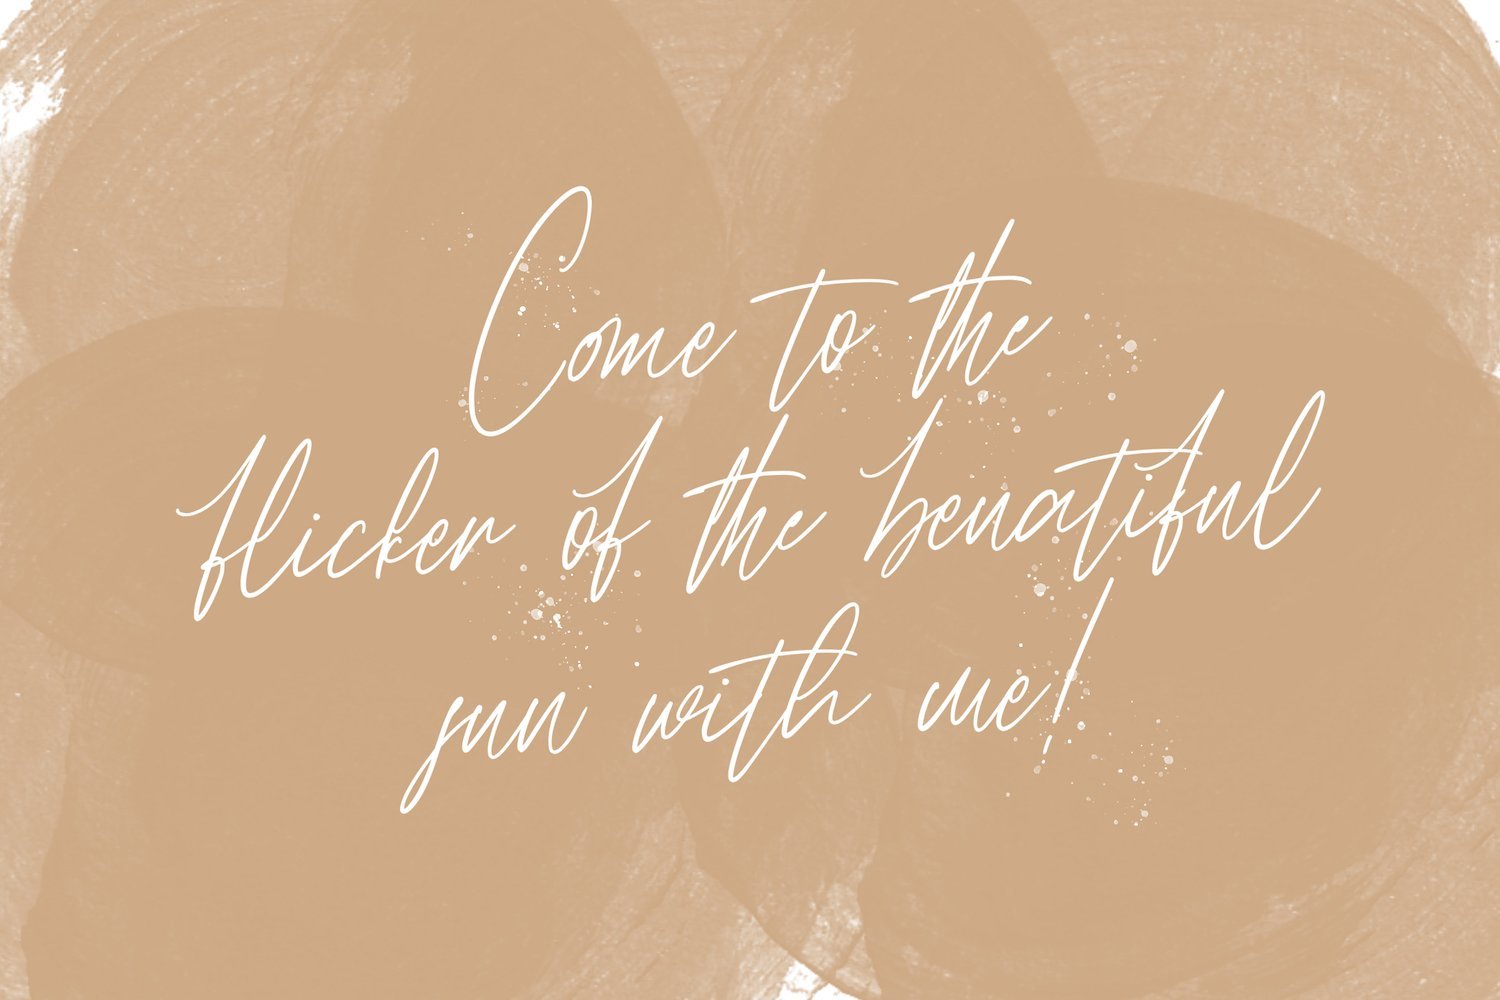 Come to the
flicker of the benatiful
sun with me!